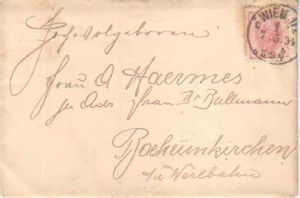 Hochwolgeboren
Frau A Haermes
per Adr Frau Dr Bullmann
Böheimkirchen
a/d Westbahn
WIEN